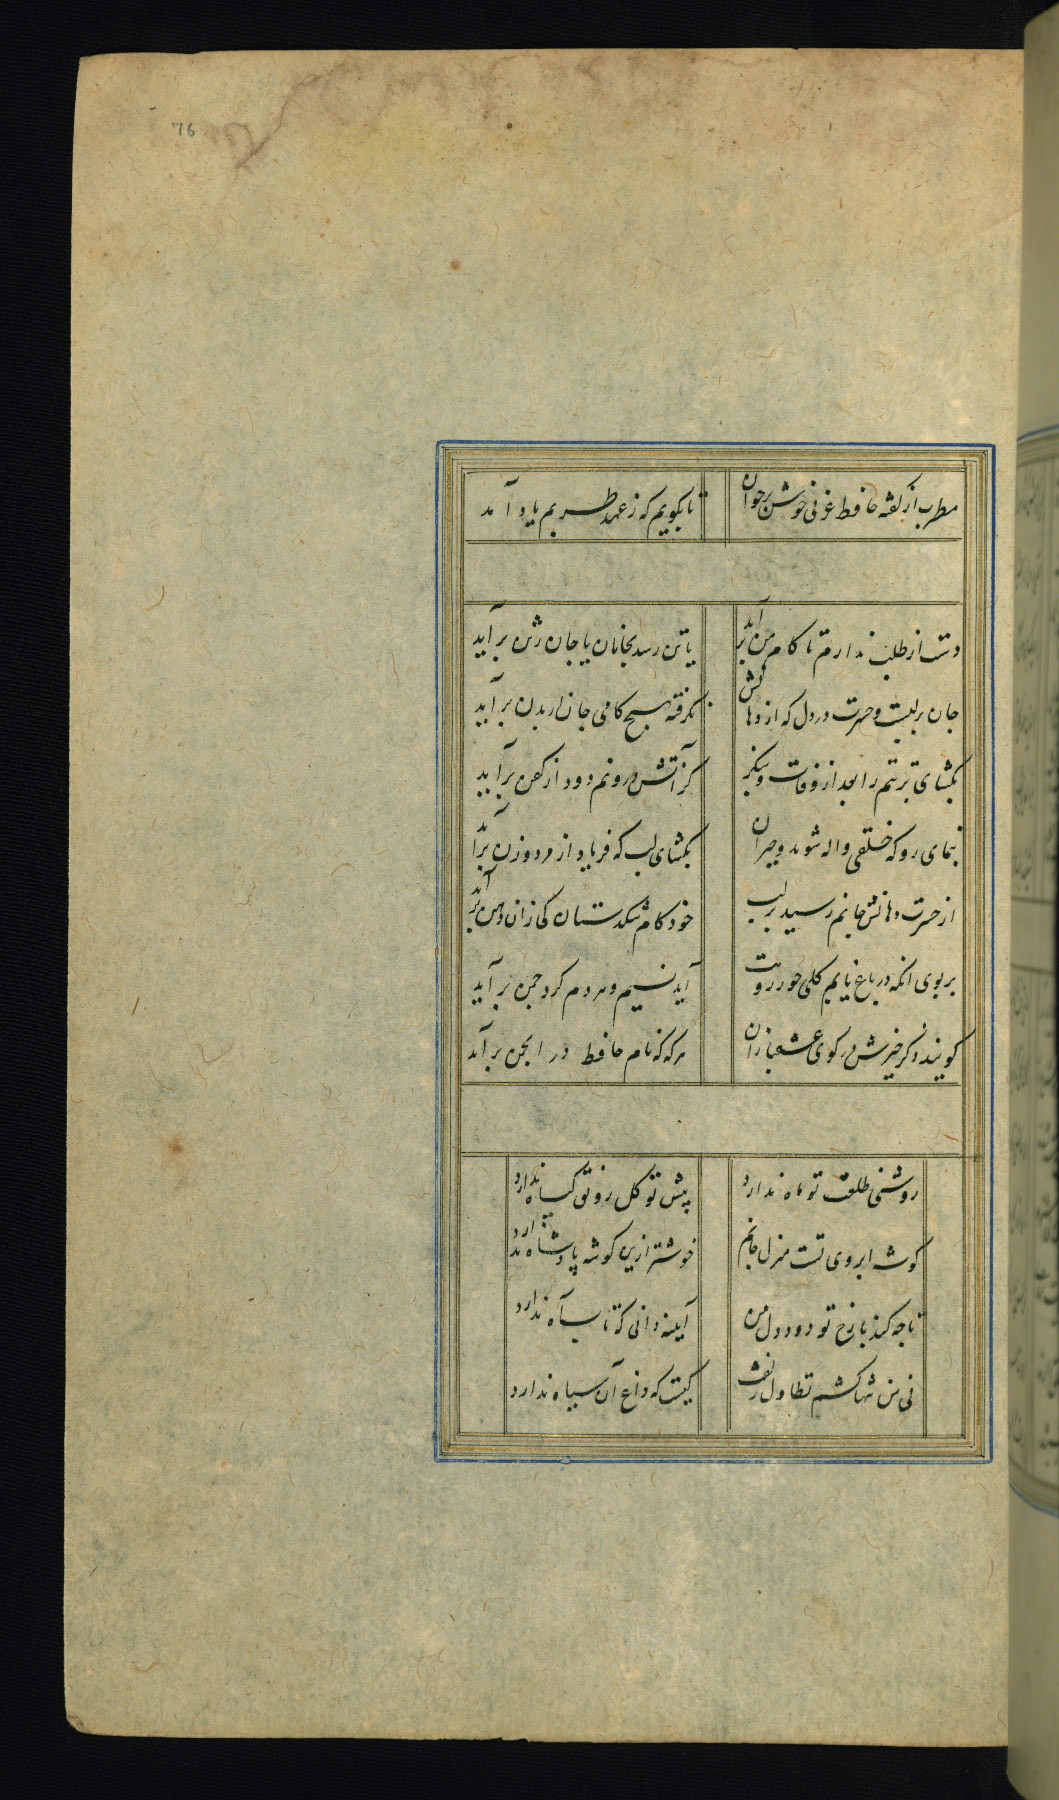 76
مطرب از گفته حافظ غزلی خوش برخوان
تا بگویم که ز عهد طربم یاد آمد
دست از طلب ندارم تا کام من برآید
یا تن رسد بجانان یا جان ز تن برآید
جان بر لبست و حسرت در دل که از دهانش
نگرفته هیچ کامی جان از بدن برآید
بگشای تربتم را بعد از وفات و بنگر
کز آتش درونم دود از کفن برآید
بنمای رو که خلقی واله شوند و حیران
بگشای لب که فریاد از مرد و زن برآید
از حسرت دهانش جانم رسید بر لب
خود کام تنگدستان کی زان دهن برآید
بر بوی انکه در باغ یابم گلی چو رویت
آید نسیم و هر دم گرد چمن برآید
گویند ذکر خیرش در کوی عشقبازان
هر که که نام حافظ در انجمن برآید
روشنی طلعت تو ماه ندارد
پیش تو گل رونق گیاه ندارد
گوشه ابروی تست منزل جانم
خوشتر ازین گوشه پادشاه ندارد
تا چه کند با رخ تو دود دل من
آینه دانی که تاب آه ندارد
نی من تنها کشم تطاول زلفت
کیست که داغ آن سیاه ندارد